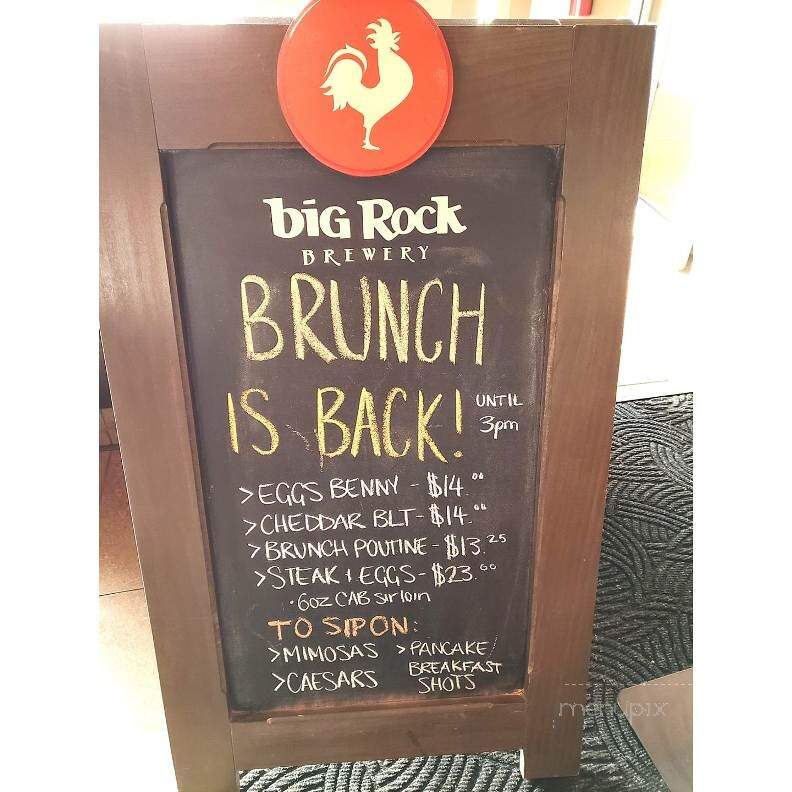 big Rock
BREWERY
BRUNCH
IS BACK!
UNTIL
3pm
>EGGS BENNY - $14.00
>CHEDDAR BLT - $14.00
>BRUNCH POUTINE - $13.25
>STEAK + EGGS - $23.00
·6oz CAB sirloin
TO SIP ON:
>MIMOSAS
>CAESARS
>PANCAKE/
BREAKFAST
SHOTS
menupix